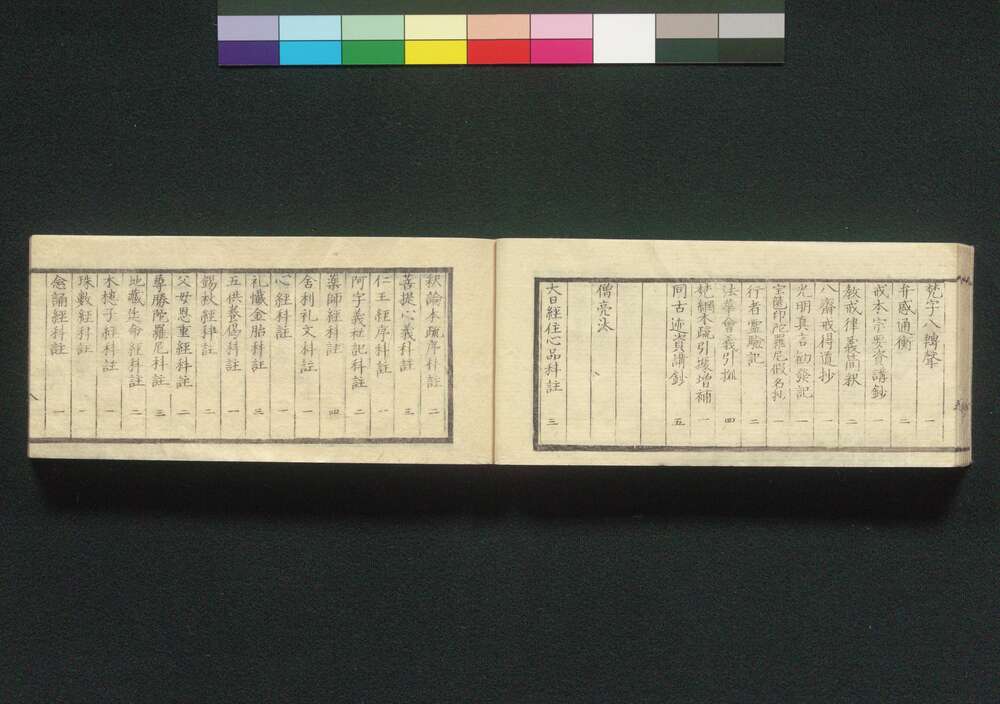 梵字八轉聲 一
弁惑通衡 二
戒本宗要斉講鈔 一
教戒律義簡釈 二
八斎戒得道抄 一
光明真言 勧發記 一
宝篋印陀羅尼假名抄 一
行者霊驗記 二
法華會義引 四
梵網本疏引據增補 一
同古迹資講鈔 五
僧亮汰
大日經住心品科註 三
釈論本疏序科註 二
菩提心義科註 三
仁王經序科註 一
阿字義社記科註 二
藥師經科註 四
舎利礼文科註 一
心經科註 一
礼懺金胎科註 三
五供養偈科註 一
錫杖經科註 二
父母恩重經科註 二
尊勝陀羅尼科註 三
地藏延命經科註 二
木槵子經科註 一
珠數經科註 一
念誦經科註 一